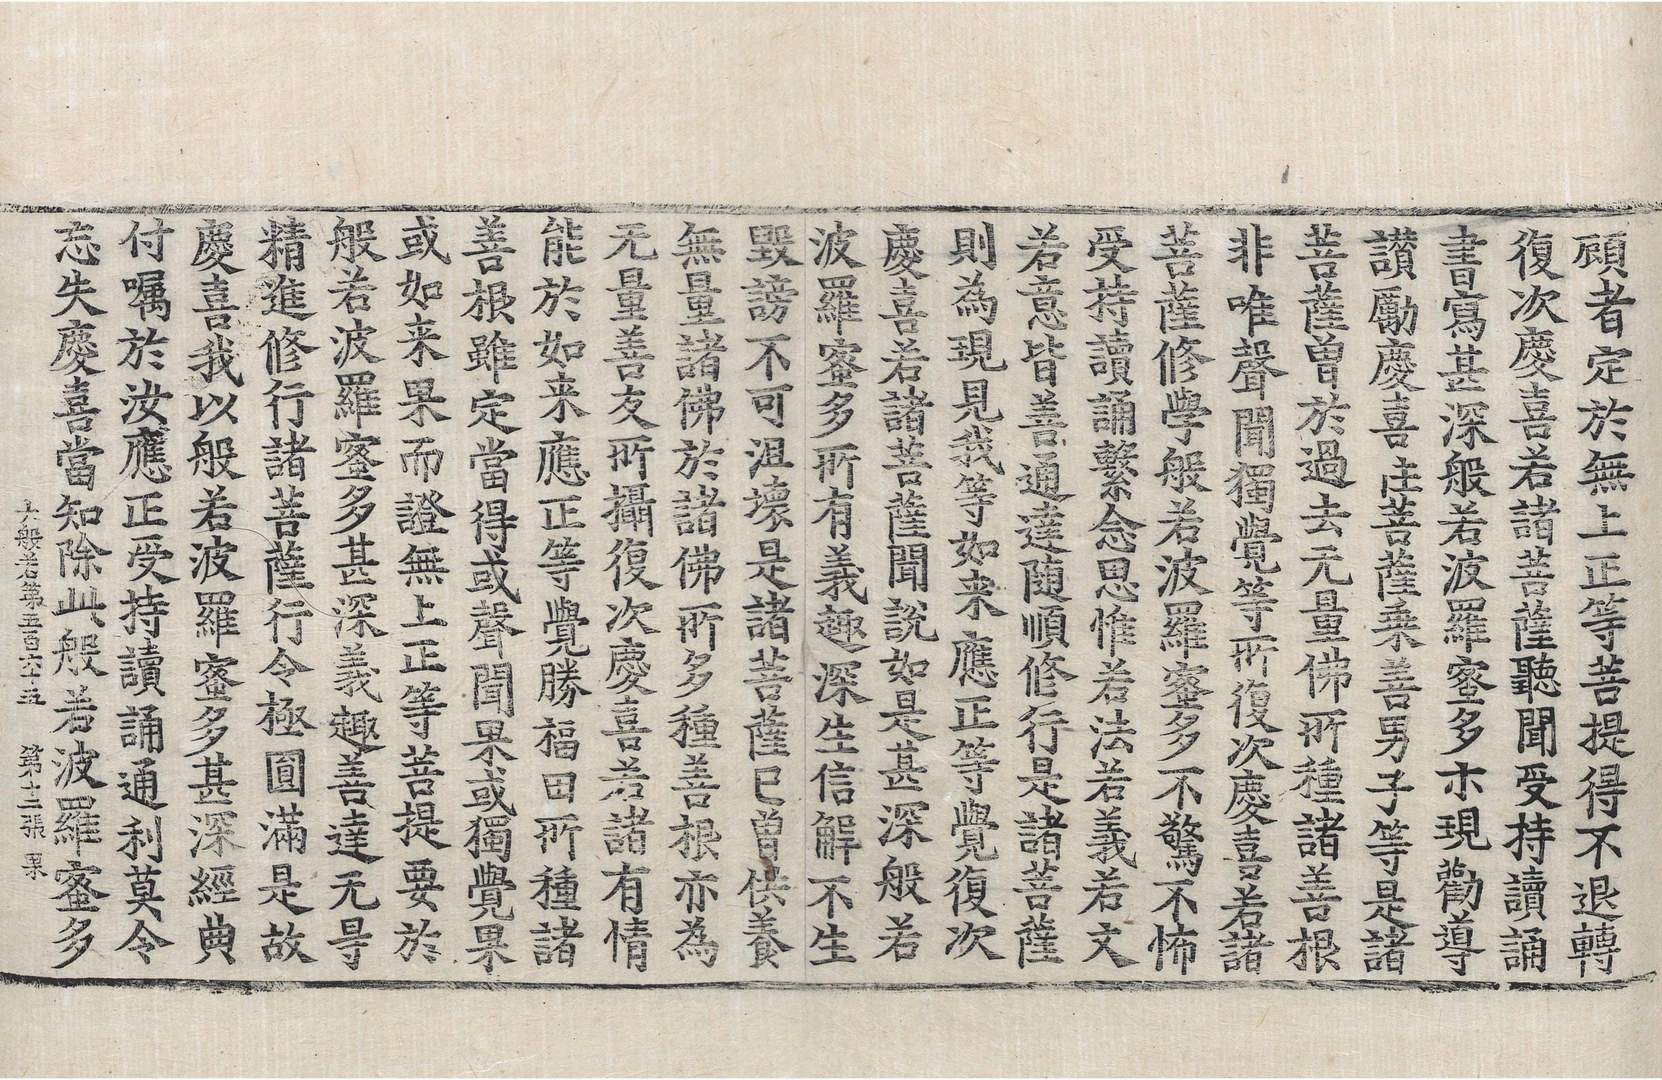 顧者定於無上正等菩提得不退轉
復次慶喜若諸菩薩聽聞受持讀誦
書寫甚深般若波羅蜜多示現勸導
讃勵慶喜住菩薩乘善男子等是諸
菩薩曾於過去无量佛所種諸善根
非唯聲聞獨覺等所復次慶喜若諸
菩薩修學般若波羅蜜多不驚不怖
受持讀誦繫念思惟若法若義若文
若意皆善通達随順修行是諸菩薩
則為現見我等如来應正等覺復次
慶喜若諸菩薩聞說如是甚深般若
波羅蜜多所有義趣深生信解不生
毀謗不可沮壞是諸菩薩已曾供養
無量諸佛於諸佛所多種善根亦為
无量善友所攝復次慶喜若諸有情
能於如来應正等覺勝福田所種諸
善根雖定當得或聲聞果或獨覺果
或如来果而證無上正等菩提要於
般若波羅蜜多甚深義趣善達无㝵
精進修行諸菩薩行令極圓滿是故
慶喜我以般若波羅蜜多甚深經典
付囑於汝應正受持讀誦通利莫令
忘失慶喜當知除此般若波羅蜜多
大般若第五百六十五　第十二張　果